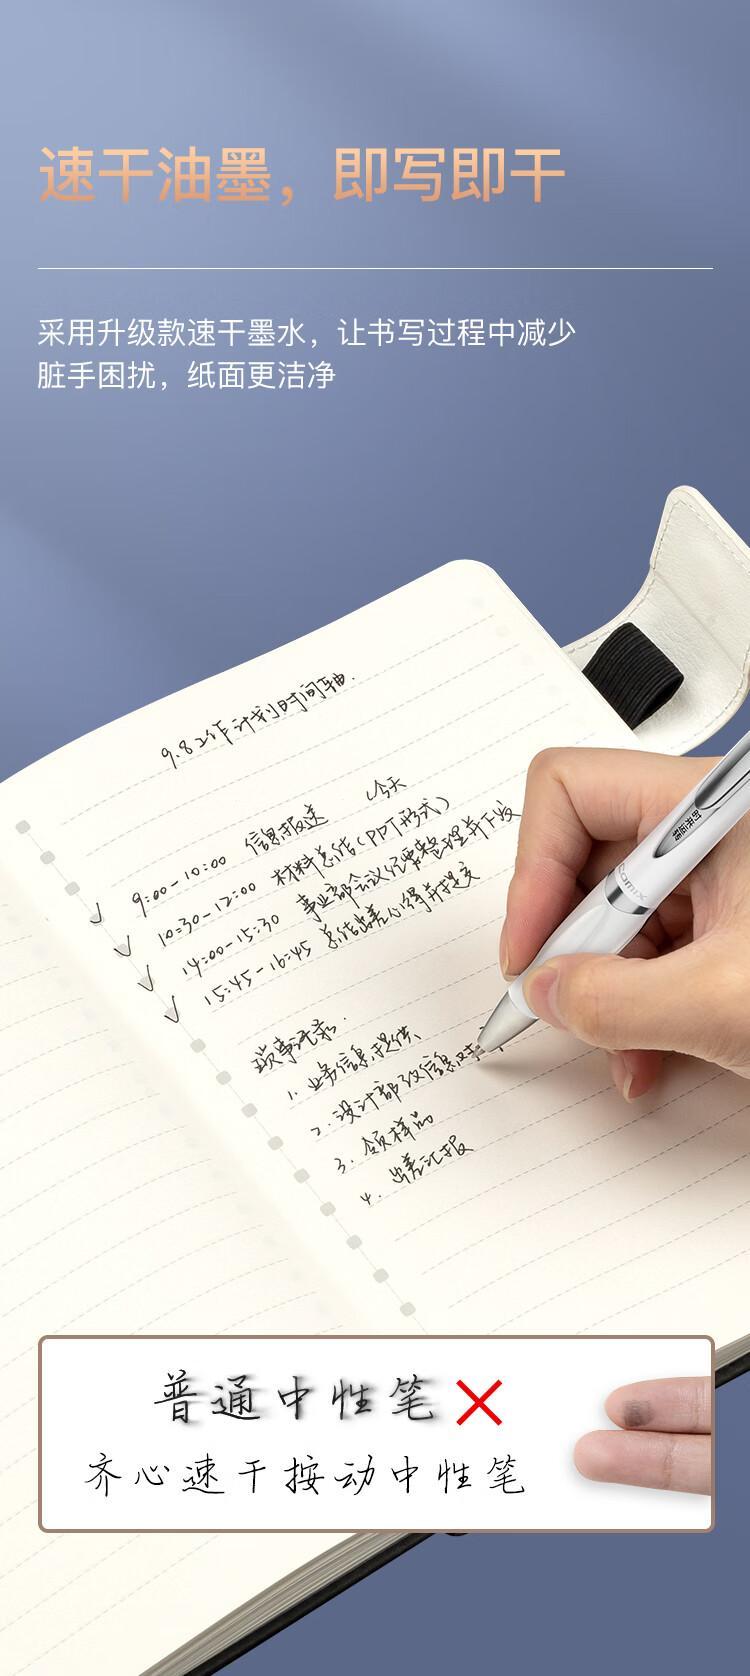 速干油墨，即写即干
采用升级款速干墨水，让书写过程中减少
脏手困扰，纸面更洁净
9.8工作计划时间轴.
今天
9:00-10:00 信息报送
10:30-12:00 材料总结(PPT形式)
14:00-15:30 事业部会议纪要整理并下发
15:45-16:45 总结出差心得并提交
琐事记录.
1. 业务信息提供
2. 设计部改信息对
3. 领样品
4. 出差汇报
时来运转
Comix
普通中性笔
齐心速干按动中性笔